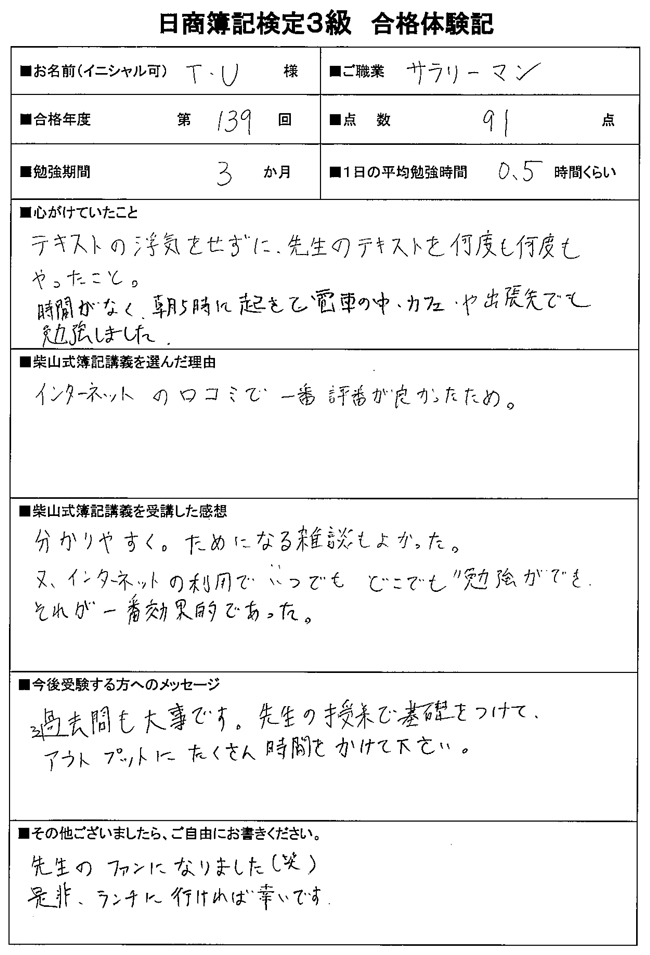 日商簿記検定3級 合格体験記
■お名前(イニシャル可) T・U 様 ■ご職業 サラリーマン
■合格年度 第 139 回 ■点 数 91 点
■勉強期間 3 か月 ■1日の平均勉強時間 0.5 時間くらい
■心がけていたこと
テキストの浮気をせずに、先生のテキストを何度も何度も
やったこと。
時間がなく、朝5時に起きて電車の中・カフェ・や出張先でも
勉強しました。
■柴山式簿記講義を選んだ理由
インターネットの口コミで一番評番が良かったため。
■柴山式簿記講義を受講した感想
分かりやすく。ためになる雑談もよかった。
又、インターネットの利用で"いつでも どこでも"勉強ができ、
それが一番効果的であった。
■今後受験する方へのメッセージ
過去問も大事です。先生の授業で基礎をつけて、
アウトプットにたくさん時間をかけて下さい。
■その他ございましたら、ご自由にお書きください。
先生のファンになりました(笑)
是非、ランチに行ければ幸いです。